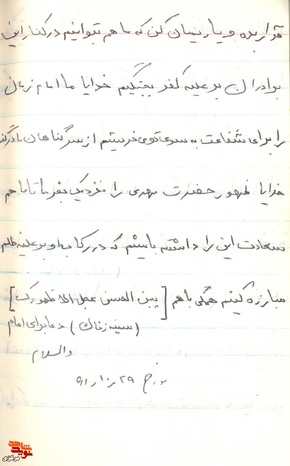 قرار بده و یاریمان کن که ما هم بتوانیم در کنار این
برادران بر علیه کفر بجنگیم خدایا ما امام زمان
را برای شفاعت به سوی تو می فرستیم از سر گناهان ما درگذر
خدایا ظهور حضرت مهدی را نزدیک بفرما تا ما هم
سعادت این را داشته باشیم که در رکاب او بر علیه ظلم
مبارزه کنیم همگی با هم
دعا برای امام
والسلام
۲۹